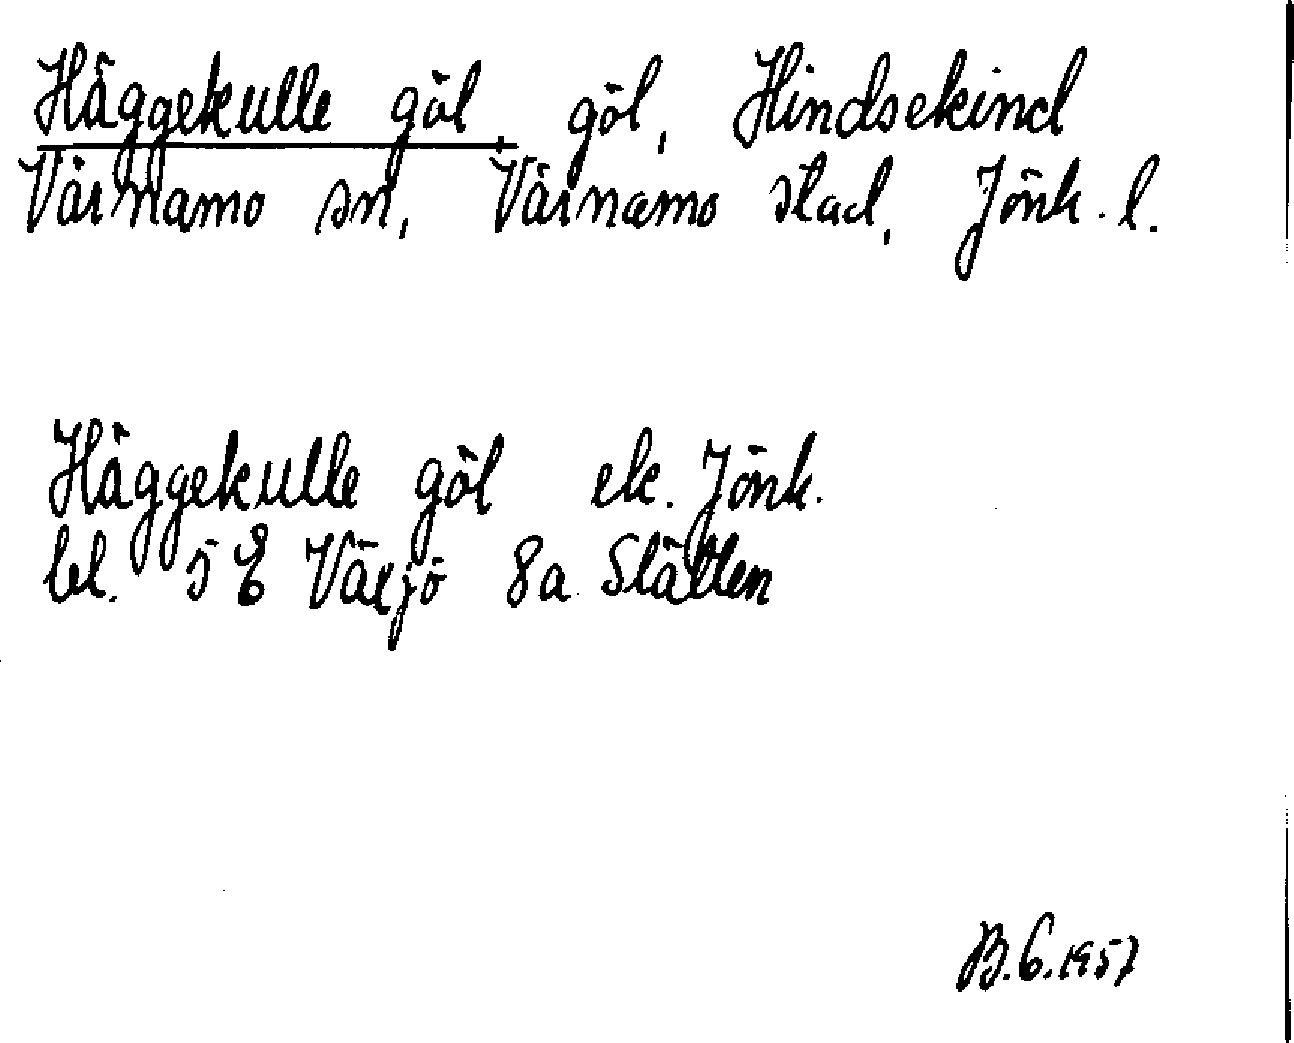 Häggekulle göl, göl, Hindsekind
Värnamo sn, Värnamo stad, Jönk. l.
Häggekulle göl ek. Jönk.
bl. 5 E Växjö 8a Slätten
B.G.1957